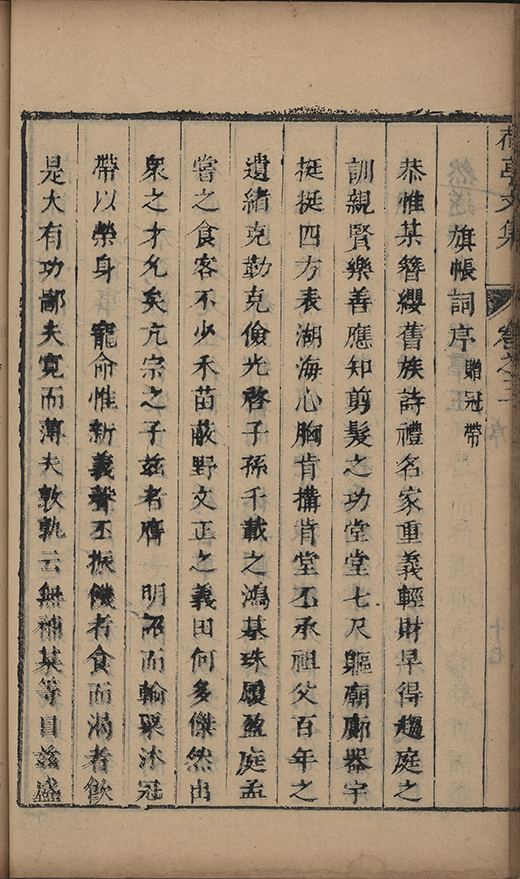 荷亭文集 卷之三
旗帳詞序 贈冠帶
恭惟某簪纓舊族詩禮名家重義輕財早得趨庭之
訓親賢樂善應知剪髮之功堂堂七尺軀廟廊器宇
挺挺四方表湖海心胸肯搆肯堂丕承祖父百年之
遺緒克勤克儉光啓子孫千載之鴻基珠履盈庭孟
嘗之食客不少禾苗蔽野文正之義田何多傑然出
衆之才允矣亢宗之子兹者膺 明詔而輸粟沐冠
帶以榮身 寵命惟新義聲丕振饑者食而渴者飲
是大有功鄙夫寬而薄夫敦孰云無補某等目兹盛